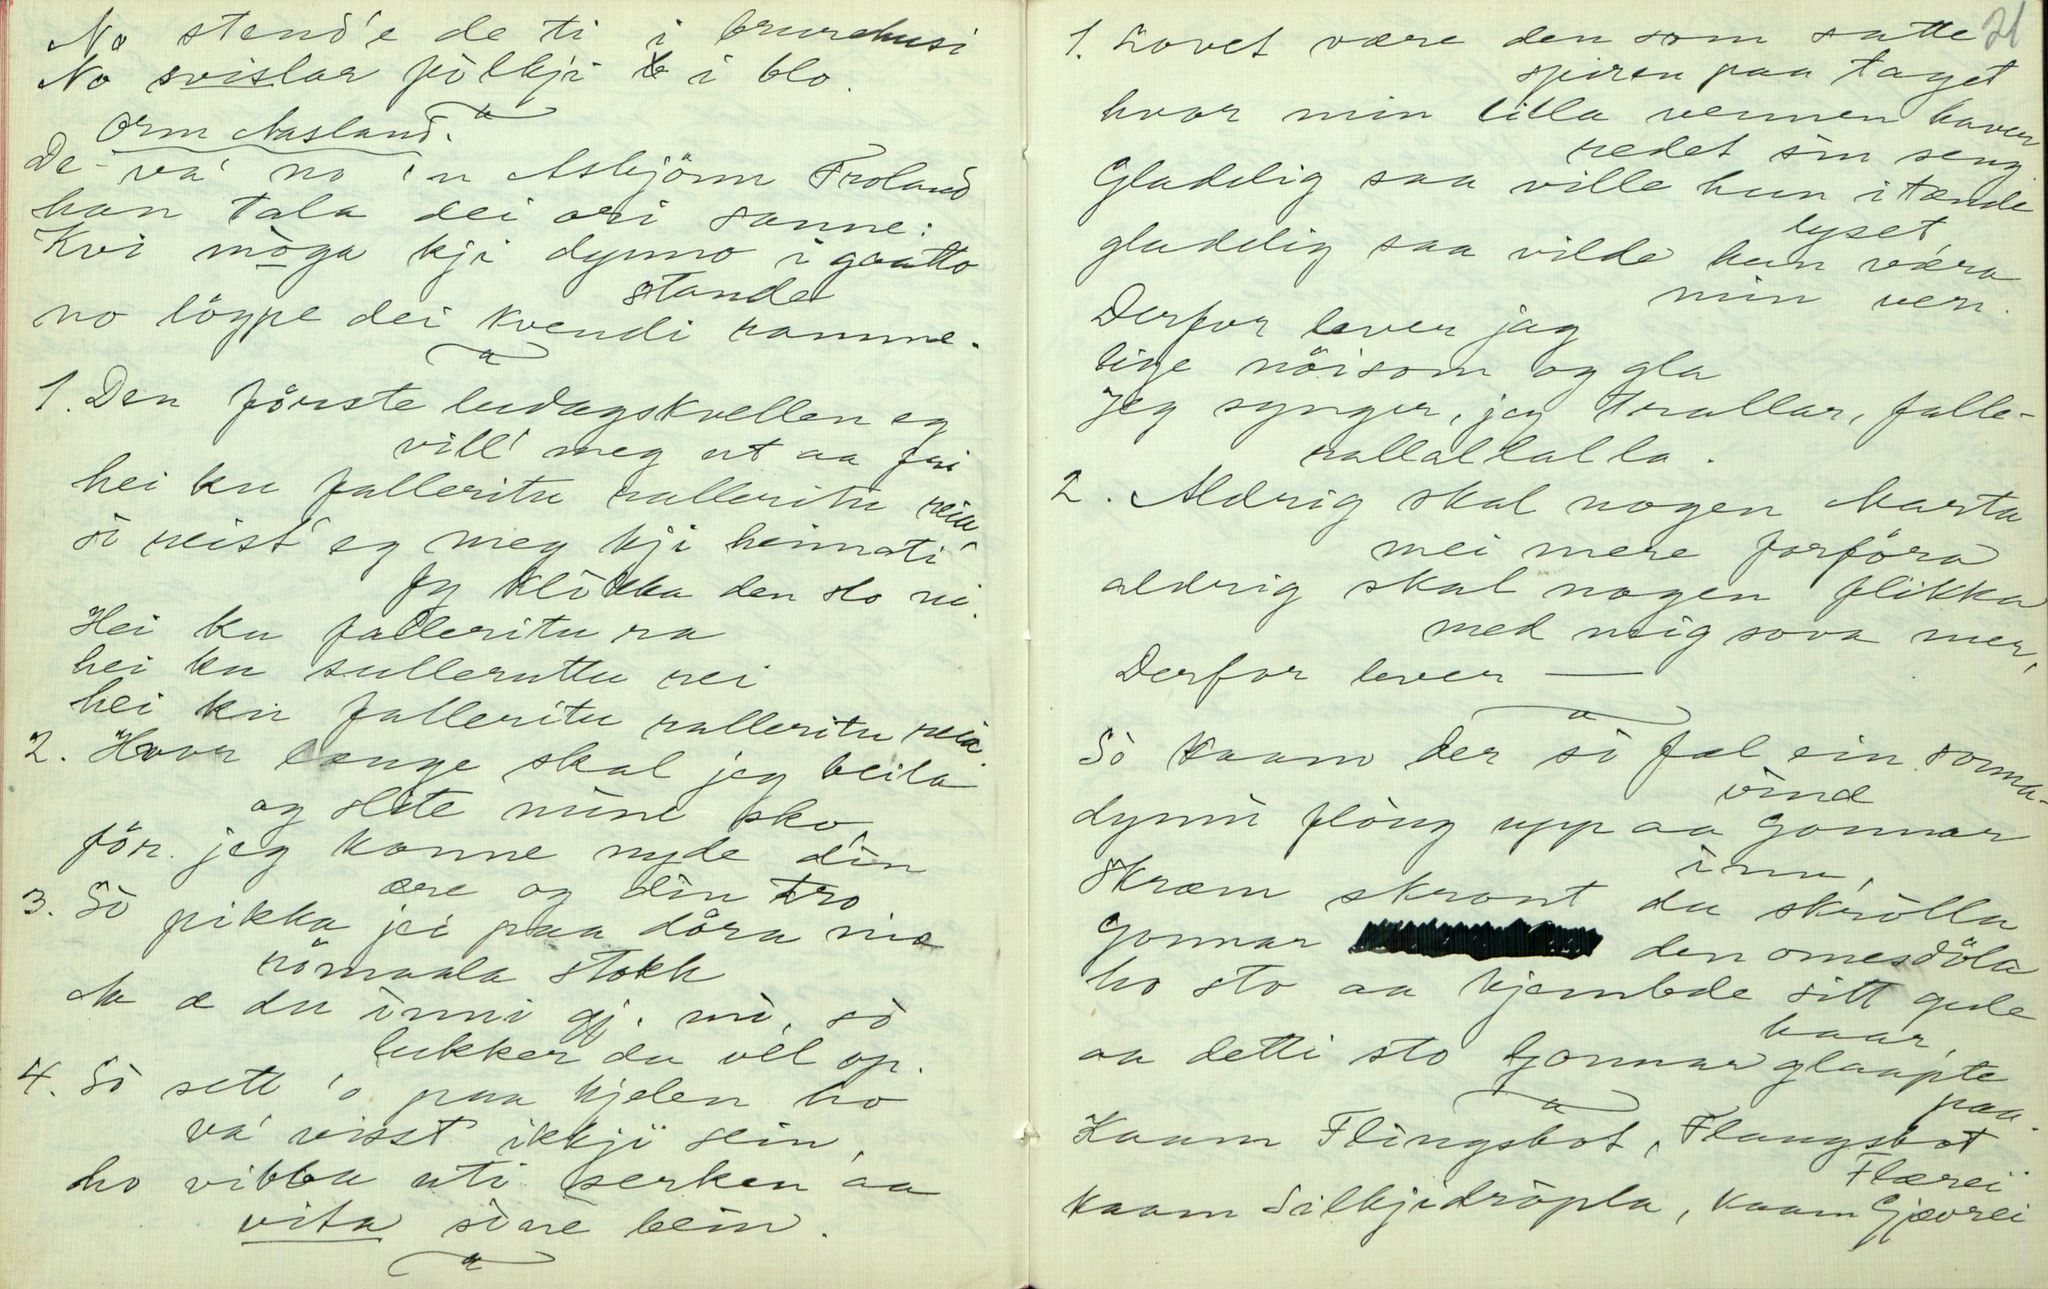 No stend'e de ti i brurehusi
No svislar pilkji i blo.
Orm Aasland.
De va' no 'n Asbjörn Froland
han tala dei ori sanne:
Kvi möga kji dynno i gaatto
stande
no löype dei kvendi ramme.
1. Den förste ludagskvellen eg
vill' meg ut aa fri
hei ku falleritu ralleritu reia
si reist' eg meg kji heimati'
fy klikka den slo ni.
Hei ku falleritu ra
hei ku sulleruttu rei
hei ku falleritu ralleritu reia
2. Hvor lange skal jeg beila
og slite mine sko,
för jeg kanne nyde din
ære og din tro
3. Sò pikka jei paa dåra mæ
römaala stokk
Aa æ du inni gj. mi, sò
lukker du vel op.
4. Sò sett 'o paa kjolen ho
va' visst ikkji sein,
ho vibba uti serken aa
vita sine bein.
21
1. Lovet være den som satte
spiren paa taget
hvor min lilla vennen haver
redet sin seng.
Gladelig saa ville hun itænde
lyset,
gladelig saa vilde hun væra
min ven.
Derfor lever jag
lige nöisom og gla
Jeg synger, jeg trallar, falle-
rallallalla.
2. Aldrig skal nogen Marta
mei mere forföra
aldrig skal nogen flikka
med meig sova mer,
Derfor lever —
Sò kaam der sò fæl ein somma-
vind
dynni flöug upp aa Gonnar
inn,
Skræm skront du skrölla
Gonnar den omesdöla
ho sto aa kjembde sitt gule
haar,
aa detti sto Gonnar glaapte
paa.
Kaam Flingsbot, Flangsbot
Flærei
kaam Silkjidròpla, kaam Gjævrei